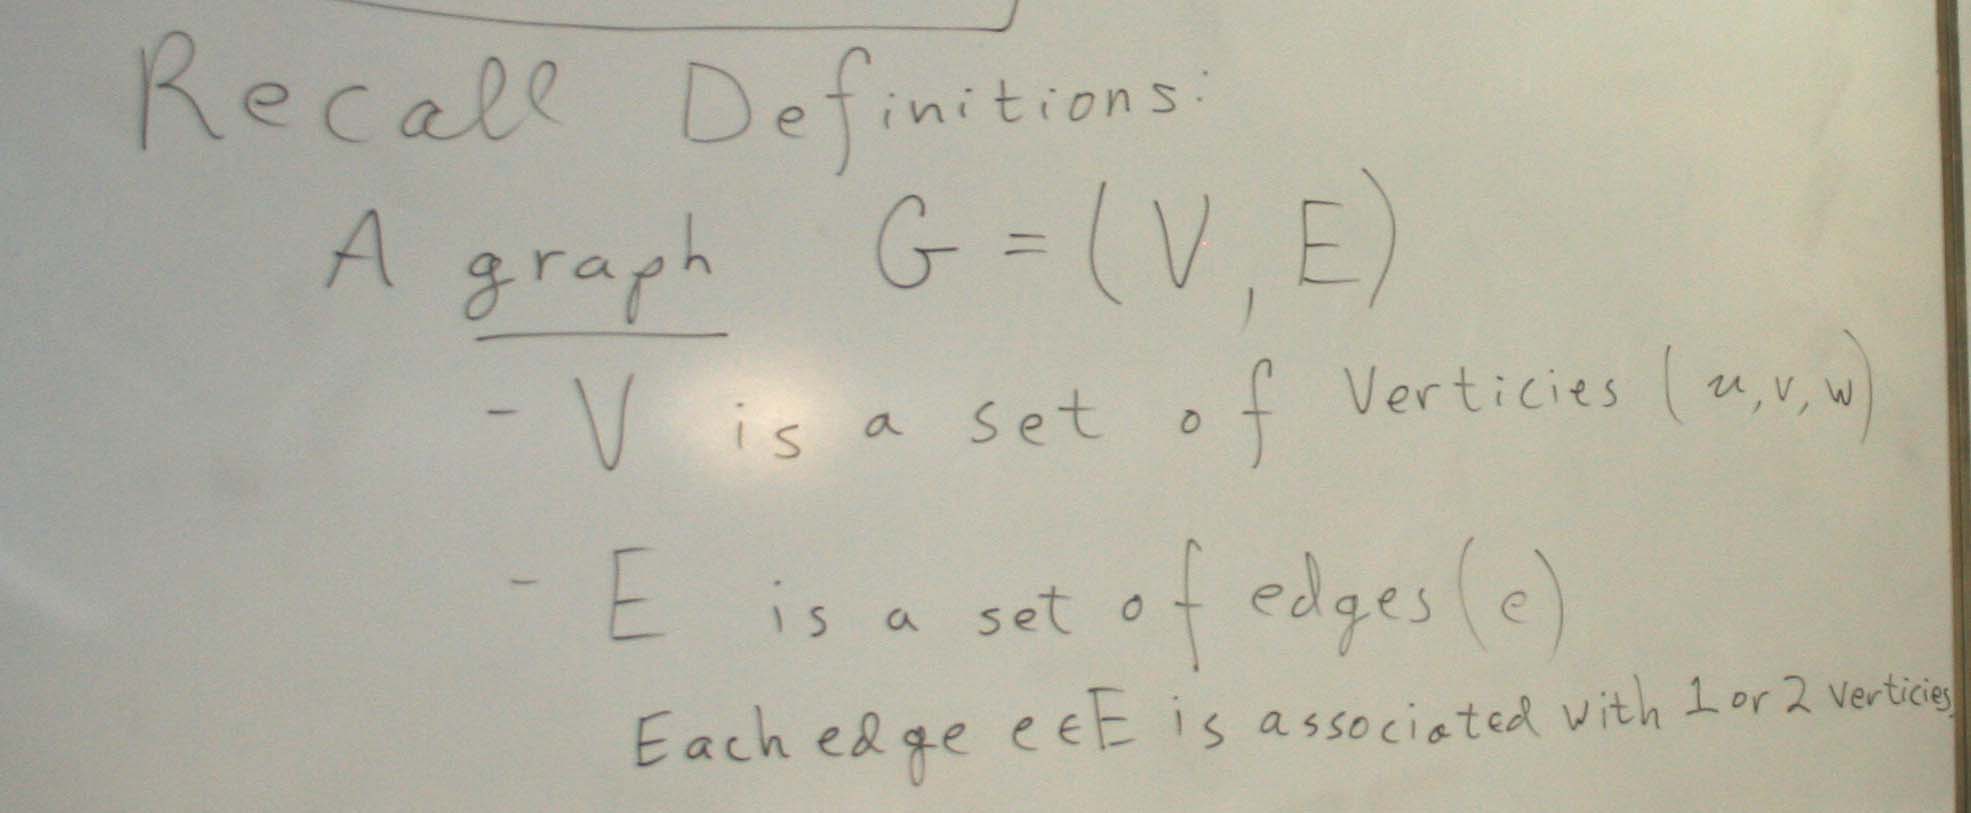 Recall Definitions:
A graph G = (V, E)
- V is a set of Verticies (u, v, w)
- E is a set of edges (e)
Each edge e∈E is associated with 1 or 2 verticies